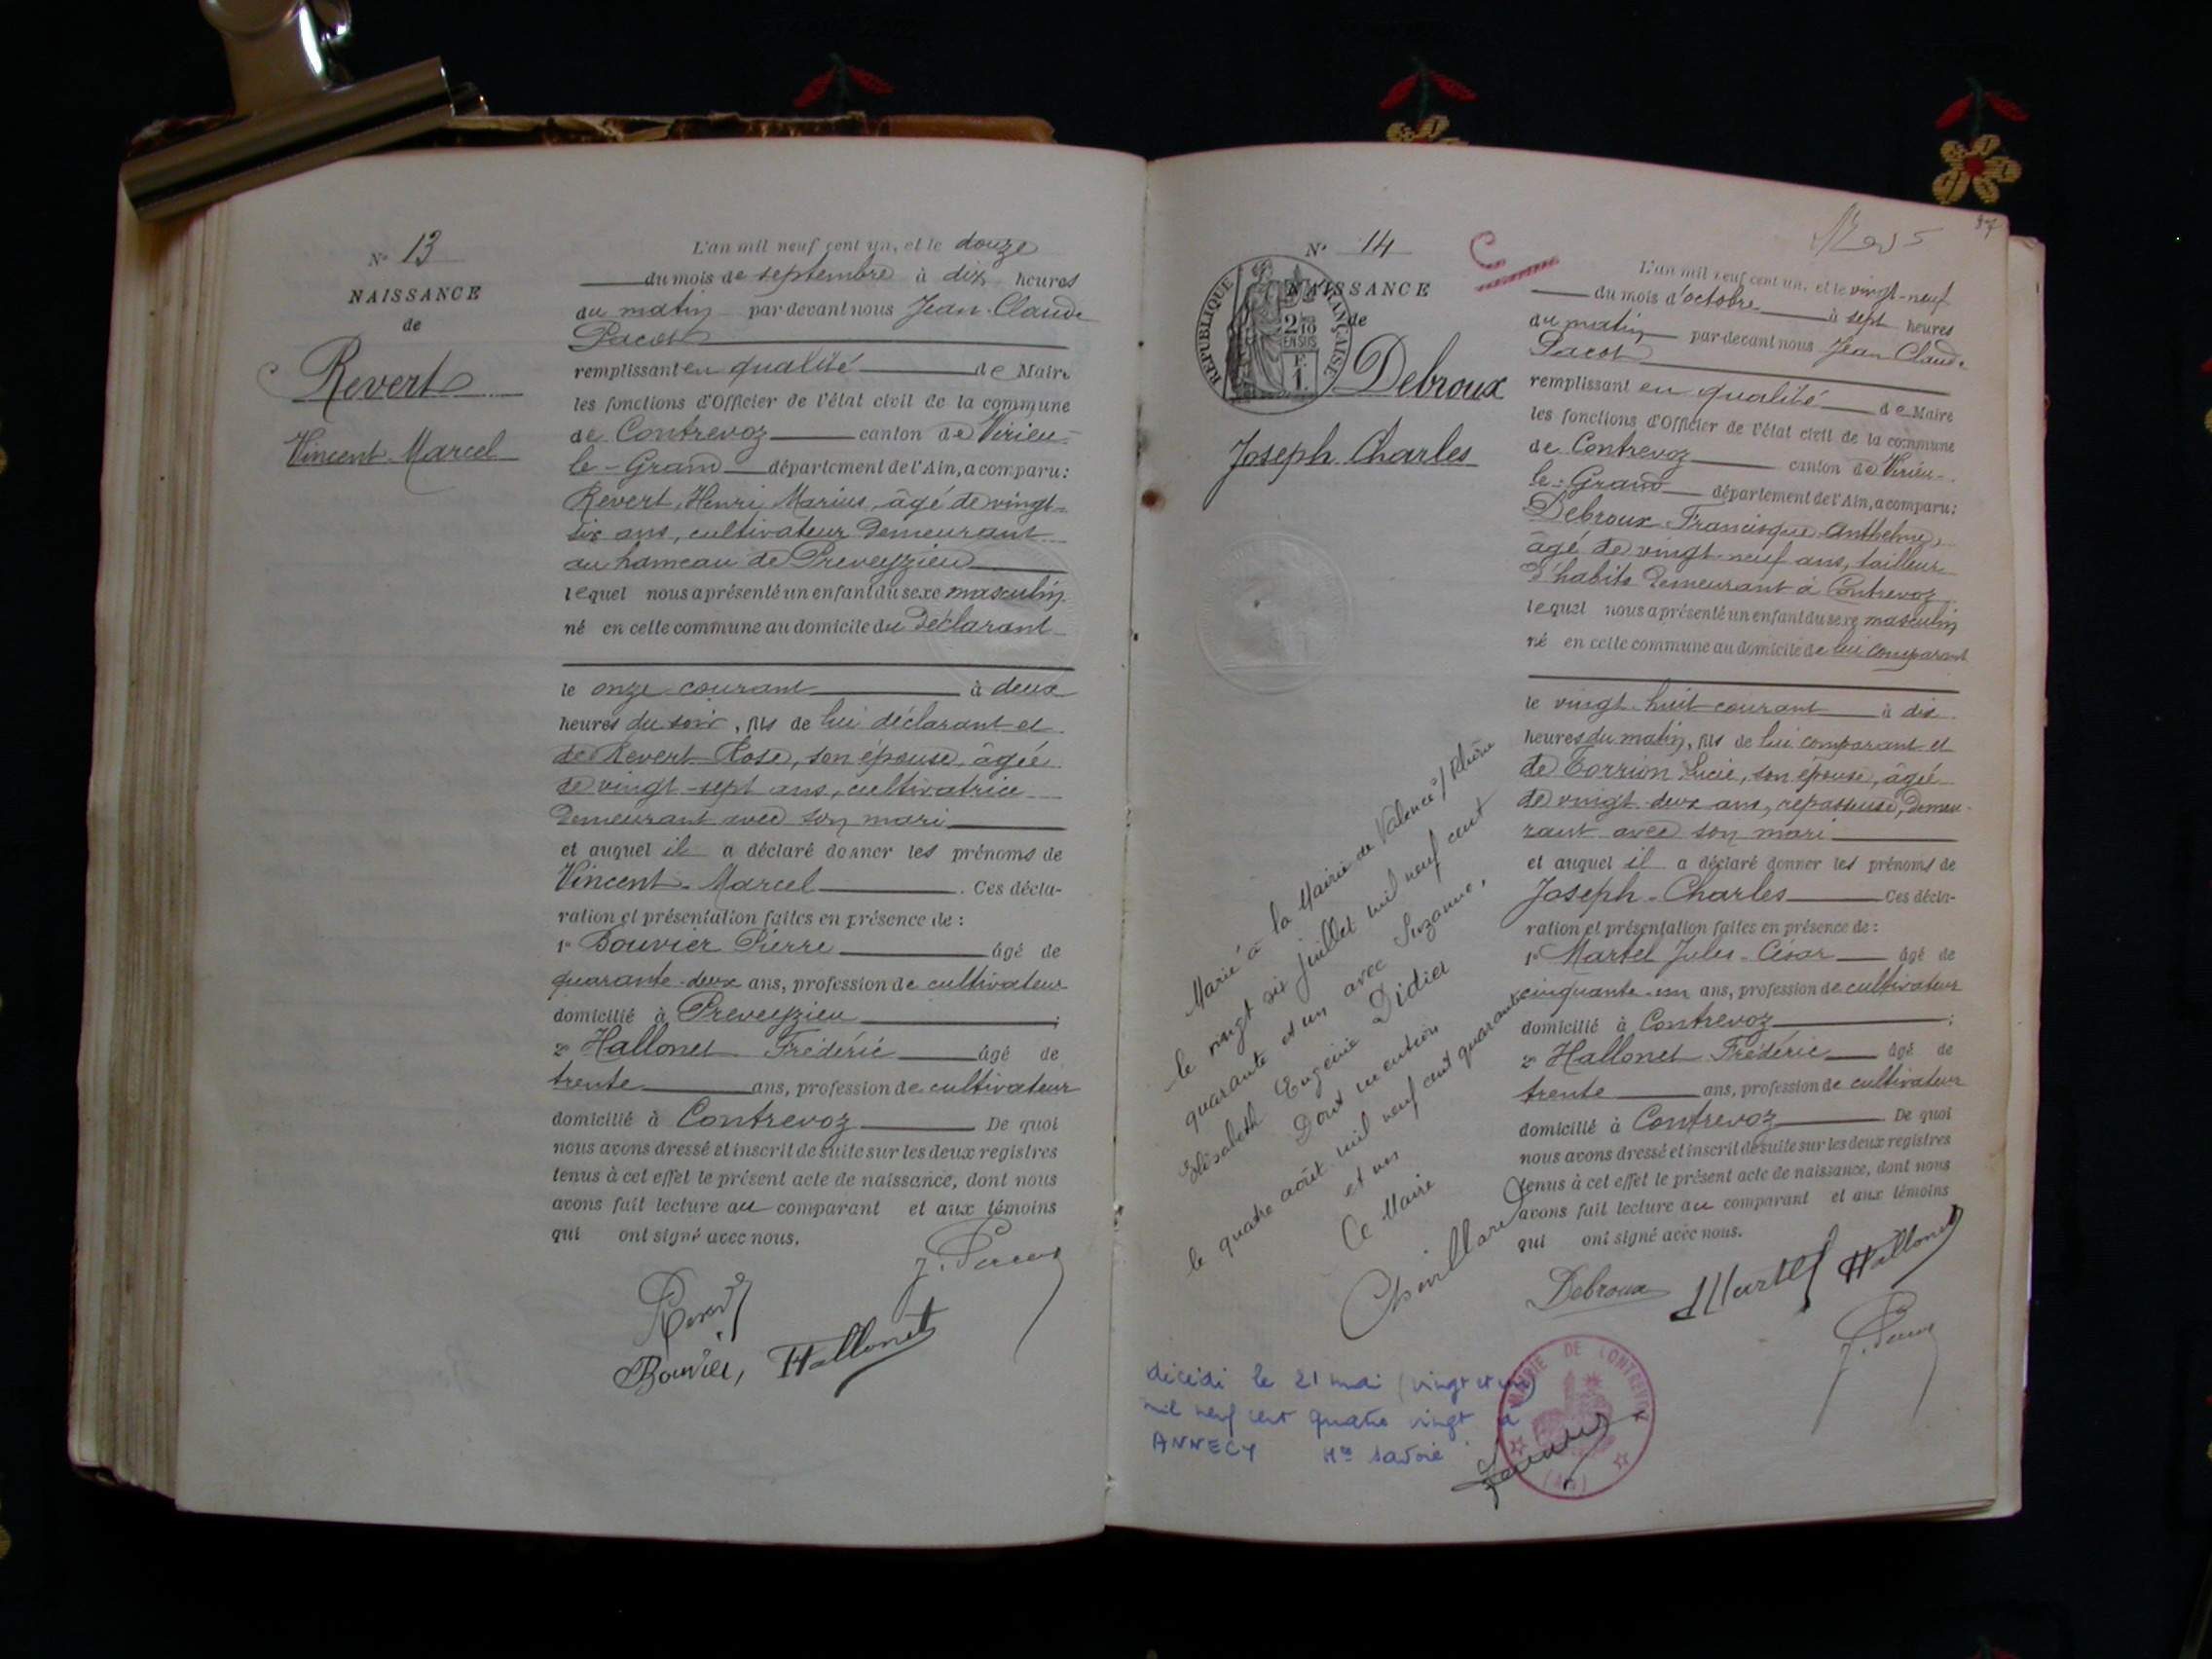 N° 13
NAISSANCE
de
Revert
Vincent Marcel
L'an mil neuf cent un, et le douze
du mois de septembre à dix heures
du matin par devant nous Jean-Claude
Pacot
remplissant en qualité de Maire
les fonctions d'Officier de l'état civil de la commune
de Contrevoz canton de Virieu-
le-Grand département de l'Ain, a comparu:
Revert, Henri Marius, âgé de vingt-
six ans, cultivateur demeurant
au hameau de Preveyzieu
lequel nous a présenté un enfant du sexe masculin
né en cette commune au domicile du déclarant
le onze courant à deux
heures du soir, fils de lui déclarant et
de Revert Rose, son épouse, âgée
de vingt-sept ans, cultivatrice
demeurant avec son mari
et auquel il a déclaré donner les prénoms de
Vincent-Marcel. Ces décla-
ration et présentation faites en présence de :
1° Bouvier Pierre âgé de
quarante-deux ans, profession de cultivateur
domicilié à Preveyzieu ;
2° Hallonet Frédéric âgé de
trente ans, profession de cultivateur
domicilié à Contrevoz De quoi
nous avons dressé et inscrit de suite sur les deux registres
tenus à cet effet le présent acte de naissance, dont nous
avons fait lecture au comparant et aux témoins
qui ont signé avec nous.
J. Pacot
Revert
Bouvier, Hallonet
37
N° 14
NAISSANCE
de
RÉPUBLIQUE FRANÇAISE
2/10
EN SUS
F.
1.
Debroux
Joseph Charles
L'an mil neuf cent un, et le vingt-neuf
du mois d'octobre à sept heures
du matin par devant nous Jean Claude
Pacot
remplissant en qualité de Maire
les fonctions d'Officier de l'état civil de la commune
de Contrevoz canton de Virieu-
le-Grand département de l'Ain, a comparu:
Debroux Francisque Anthelme,
âgé de vingt-neuf ans, tailleur
d'habits demeurant à Contrevoz
lequel nous a présenté un enfant du sexe masculin
né en cette commune au domicile de lui comparant
le vingt-huit courant à dix
heures du matin, fils de lui comparant et
de Torrion Lucie, son épouse, âgée
de vingt-deux ans, repasseuse, demeu-
rant avec son mari
et auquel il a déclaré donner les prénoms de
Joseph-Charles Ces décla-
ration et présentation faites en présence de :
1° Martel Jules-César âgé de
cinquante-un ans, profession de cultivateur
domicilié à Contrevoz ;
2° Hallonet Frédéric âgé de
trente ans, profession de cultivateur
domicilié à Contrevoz De quoi
nous avons dressé et inscrit de suite sur les deux registres
tenus à cet effet le présent acte de naissance, dont nous
avons fait lecture au comparant et aux témoins
qui ont signé avec nous.
Debroux Martel Hallonet
J. Pacot
Marié à la Mairie de Valence s/ Rhône
le vingt six juillet mil neuf cent
quarante et un avec Suzanne,
Elisabeth Eugénie Didier
Dont mention
le quatre août mil neuf cent quarante
et un
Le Maire
Chevillard
décédé le 21 mai (vingt et un)
mil neuf cent quatre vingt à
ANNECY Hte Savoie
MAIRIE DE CONTREVOZ
(Ain)